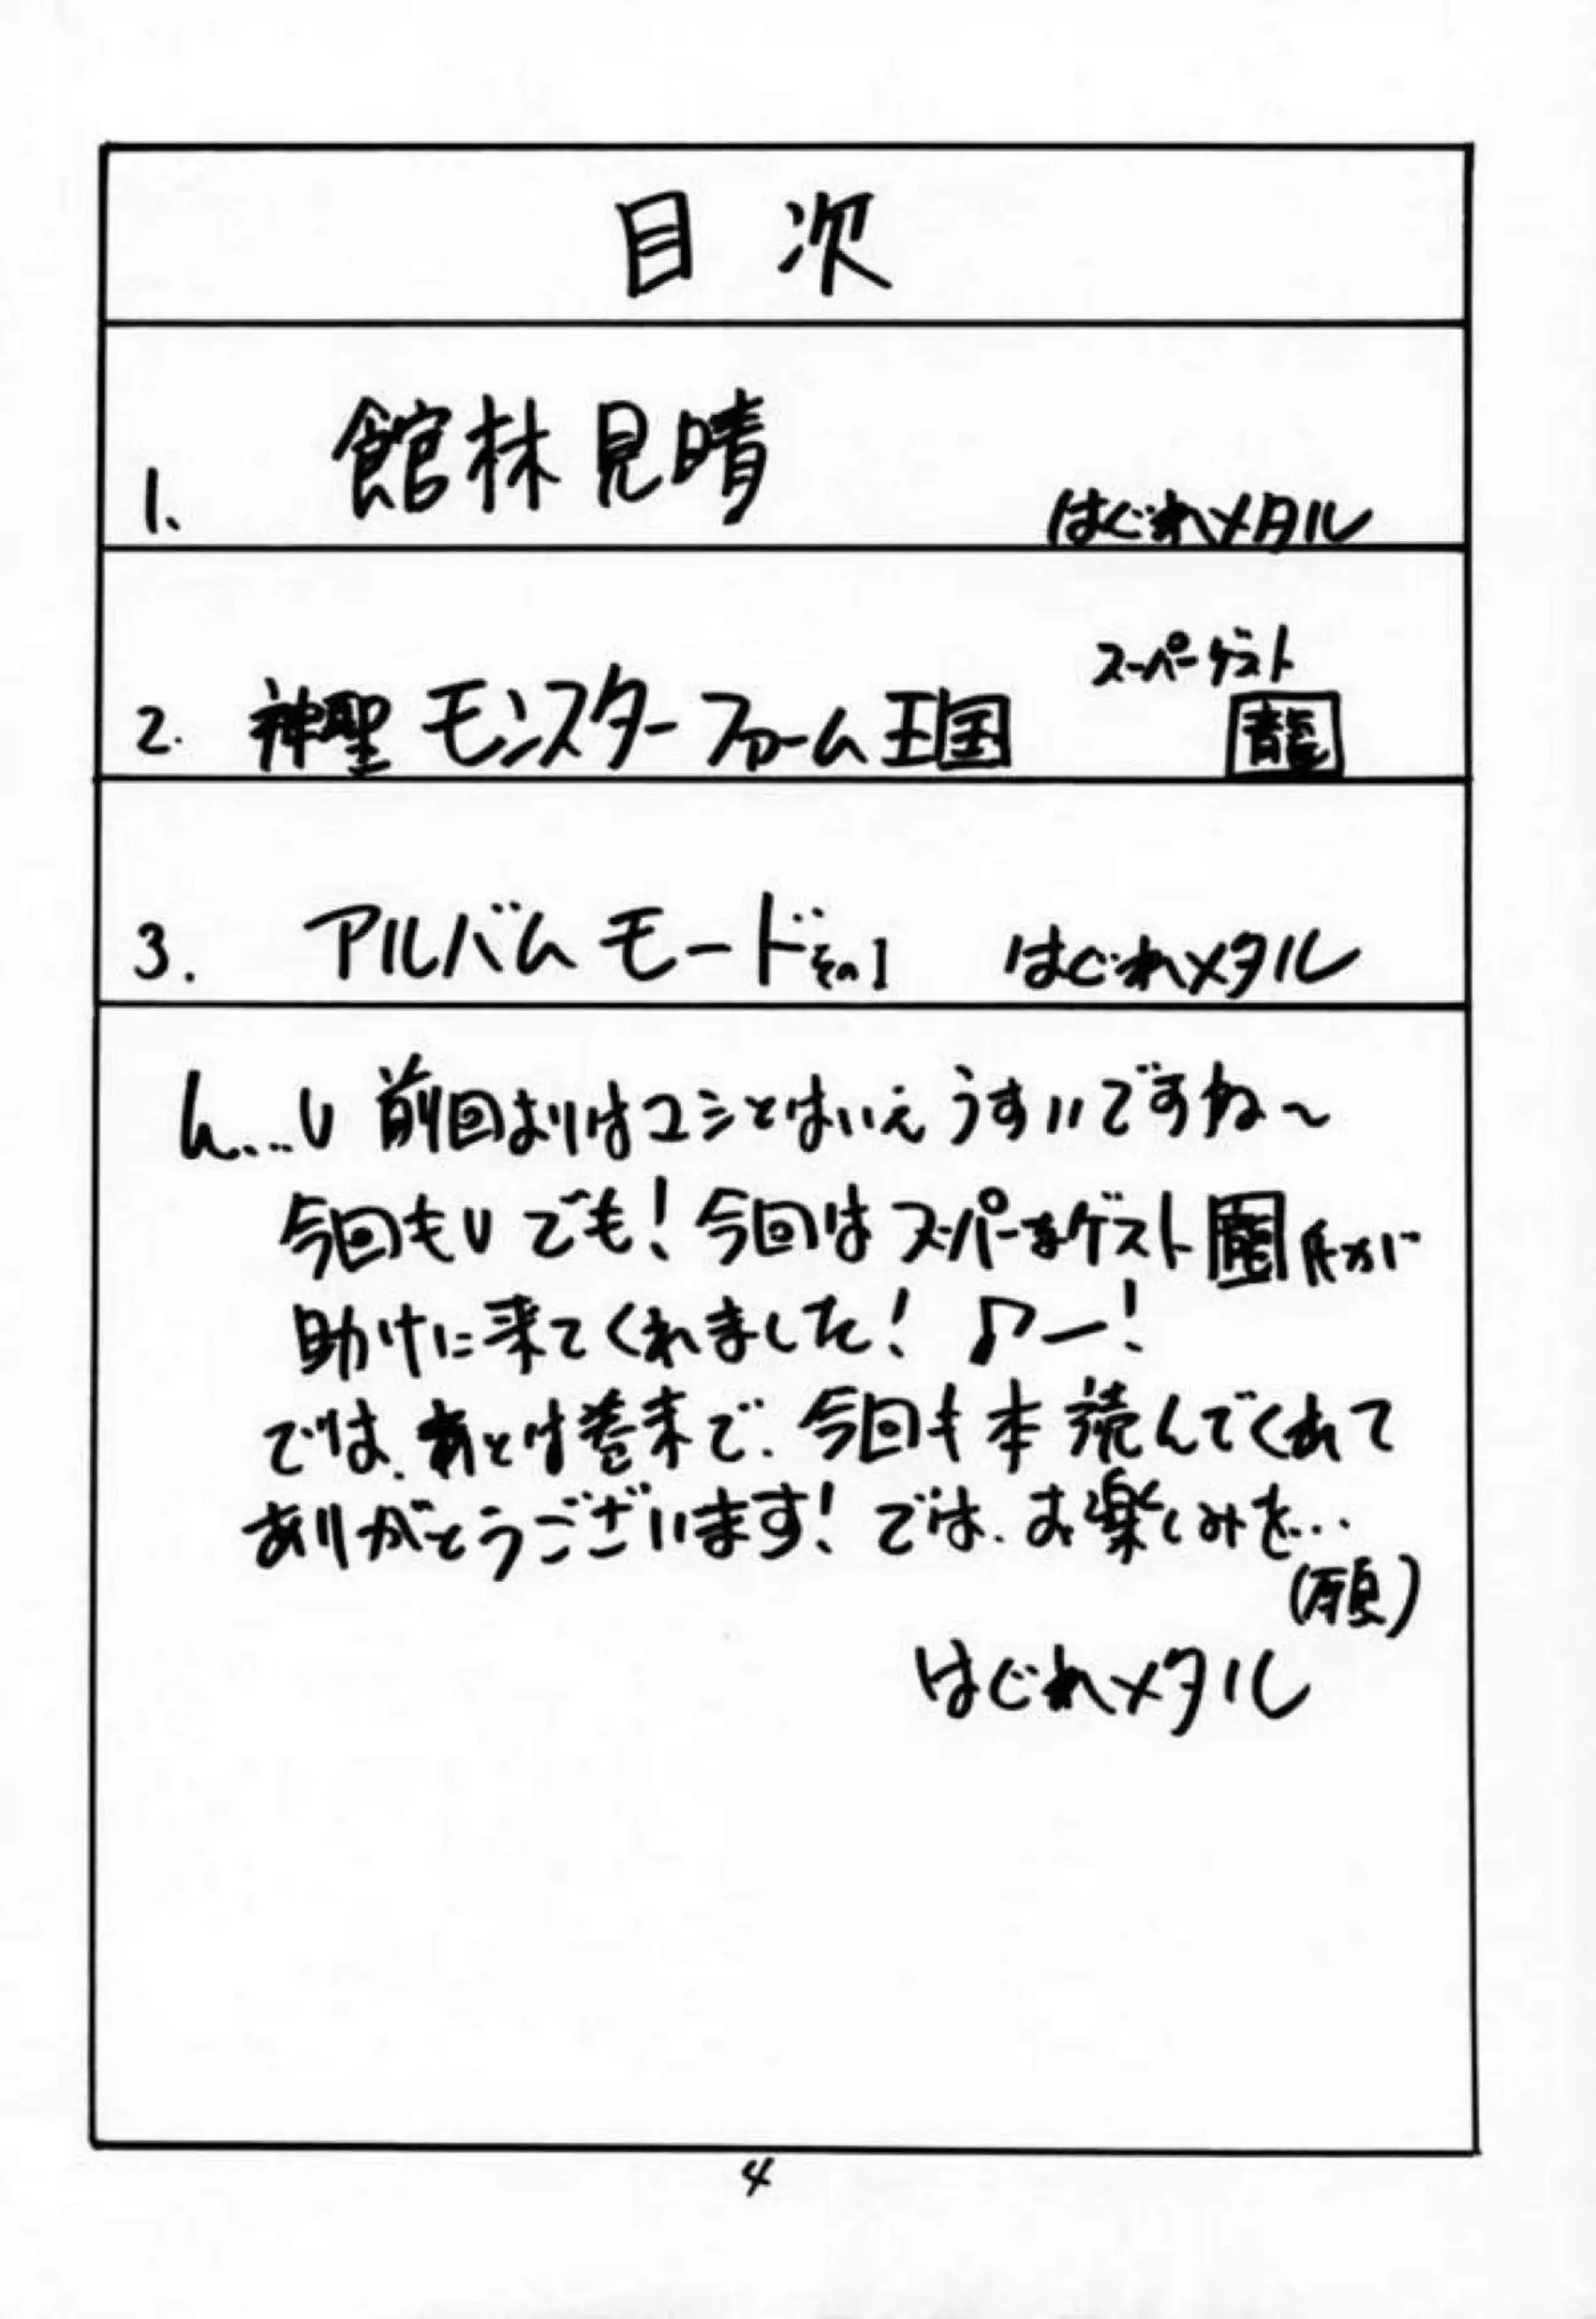 目次
1. 館林見晴 はぐれメタル
スーパーゲスト
2. 神聖モンスターファーム王国 龍
3. アルバムモードその1 はぐれメタル
ん…し 前回よりはマシとはいえうすいですね～
今回もし でも!今回はスーパーなゲスト龍氏が
助けに来てくれました!♪ー!
では、あとは巻末で、今回も本読んでくれて
ありがとうございます!では、お楽しみを…
(願)
はぐれメタル
4